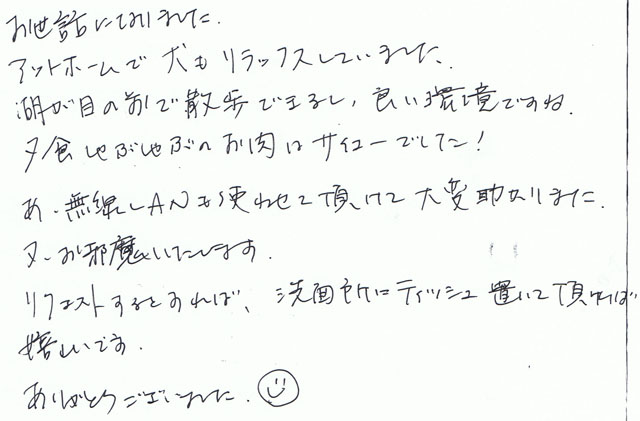 お世話になりました.
アットホームで犬もリラックスしていました.
湖が目の前で散歩できるし, 良い環境ですね.
夕食しゃぶしゃぶのお肉はサイコーでした!
あ、無線LANも使わせて頂けて大変助かりました.
又、お邪魔いたします.
リクエストするとすれば、洗面所にティッシュ置いて頂ければ
嬉しいです.
ありがとうございました.